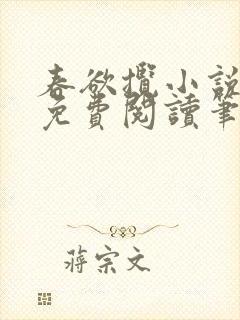 春欲攬小說
免費閱讀筆
蔣宗文